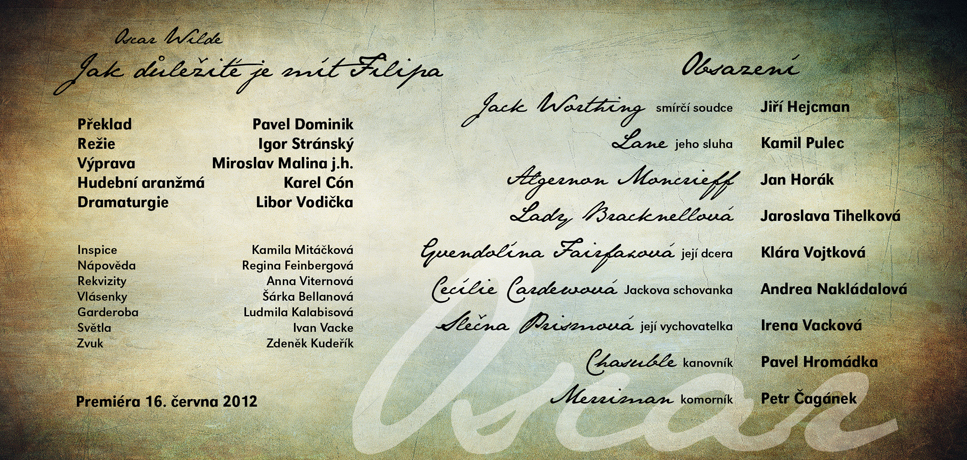 Oscar Wilde
Jak důležité je mít Filipa
Překlad Pavel Dominik
Režie Igor Stránský
Výprava Miroslav Malina j.h.
Hudební aranžmá Karel Cón
Dramaturgie Libor Vodička
Inspice Kamila Mitáčková
Nápověda Regina Feinbergová
Rekvizity Anna Viternová
Vlásenky Šárka Bellanová
Garderoba Ludmila Kalabisová
Světla Ivan Vacke
Zvuk Zdeněk Kudeřík
Premiéra 16. června 2012
Obsazení
Jack Worthing smírčí soudce Jiří Hejcman
Lane jeho sluha Kamil Pulec
Algernon Moncrieff Jan Horák
Lady Bracknellová Jaroslava Tihelková
Gvendolína Fairfaxová její dcera Klára Vojtková
Cecílie Cardewová Jackova schovanka Andrea Nakládalová
Slečna Prismová její vychovatelka Irena Vacková
Chasuble kanovník Pavel Hromádka
Merriman komorník Petr Čagánek
Oscar